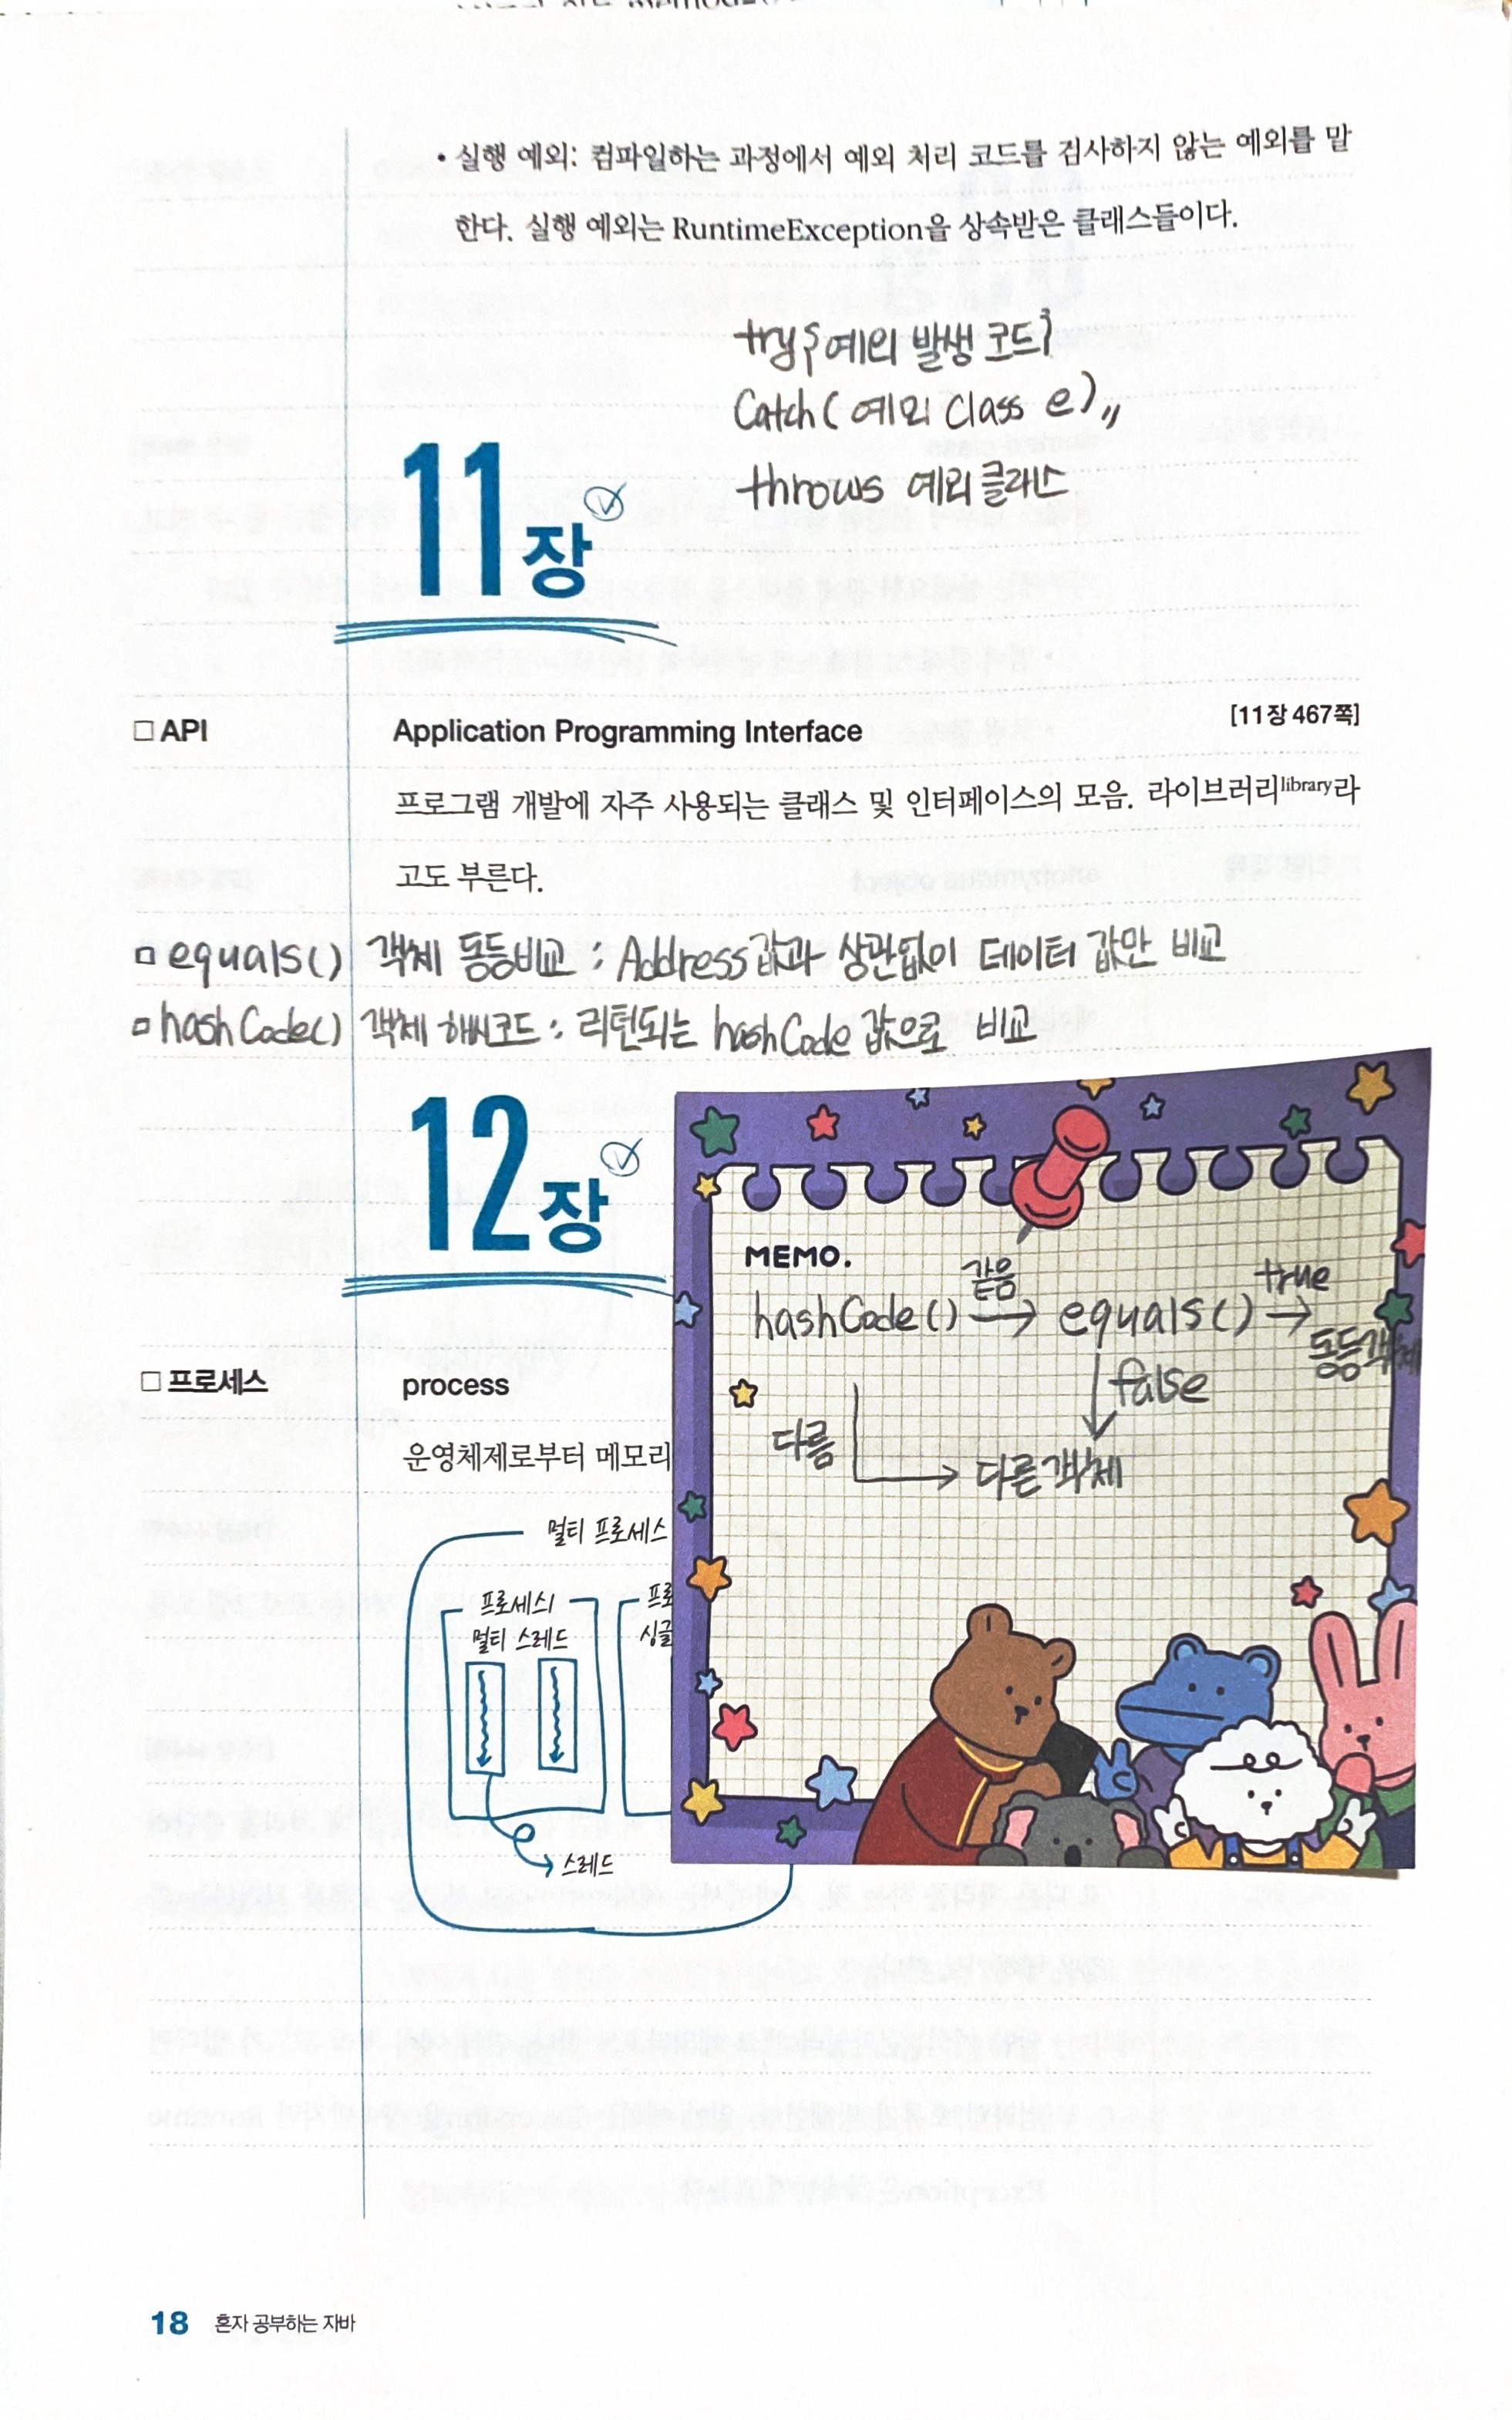 • 실행 예외: 컴파일하는 과정에서 예외 처리 코드를 검사하지 않는 예외를 말
한다. 실행 예외는 RuntimeException을 상속받은 클래스들이다.
try{예외 발생 코드}
Catch(예외 Class e)〃
throws 예외 클래스
11장
□ API Application Programming Interface [11장 467쪽]
프로그램 개발에 자주 사용되는 클래스 및 인터페이스의 모음. 라이브러리library라
고도 부른다.
□ equals() 객체 동등비교 : Address값과 상관없이 데이터 값만 비교
□ hashCode() 객체 해시코드 : 리턴되는 hashCode 값으로 비교
12장
□ 프로세스 process
운영체제로부터 메모리
멀티 프로세스
프로세스1
멀티 스레드
프로
싱글
스레드
MEMO.
hashCode() → 같음 equals() → true
동등객체
false
다름
다른 객체
18 혼자 공부하는 자바